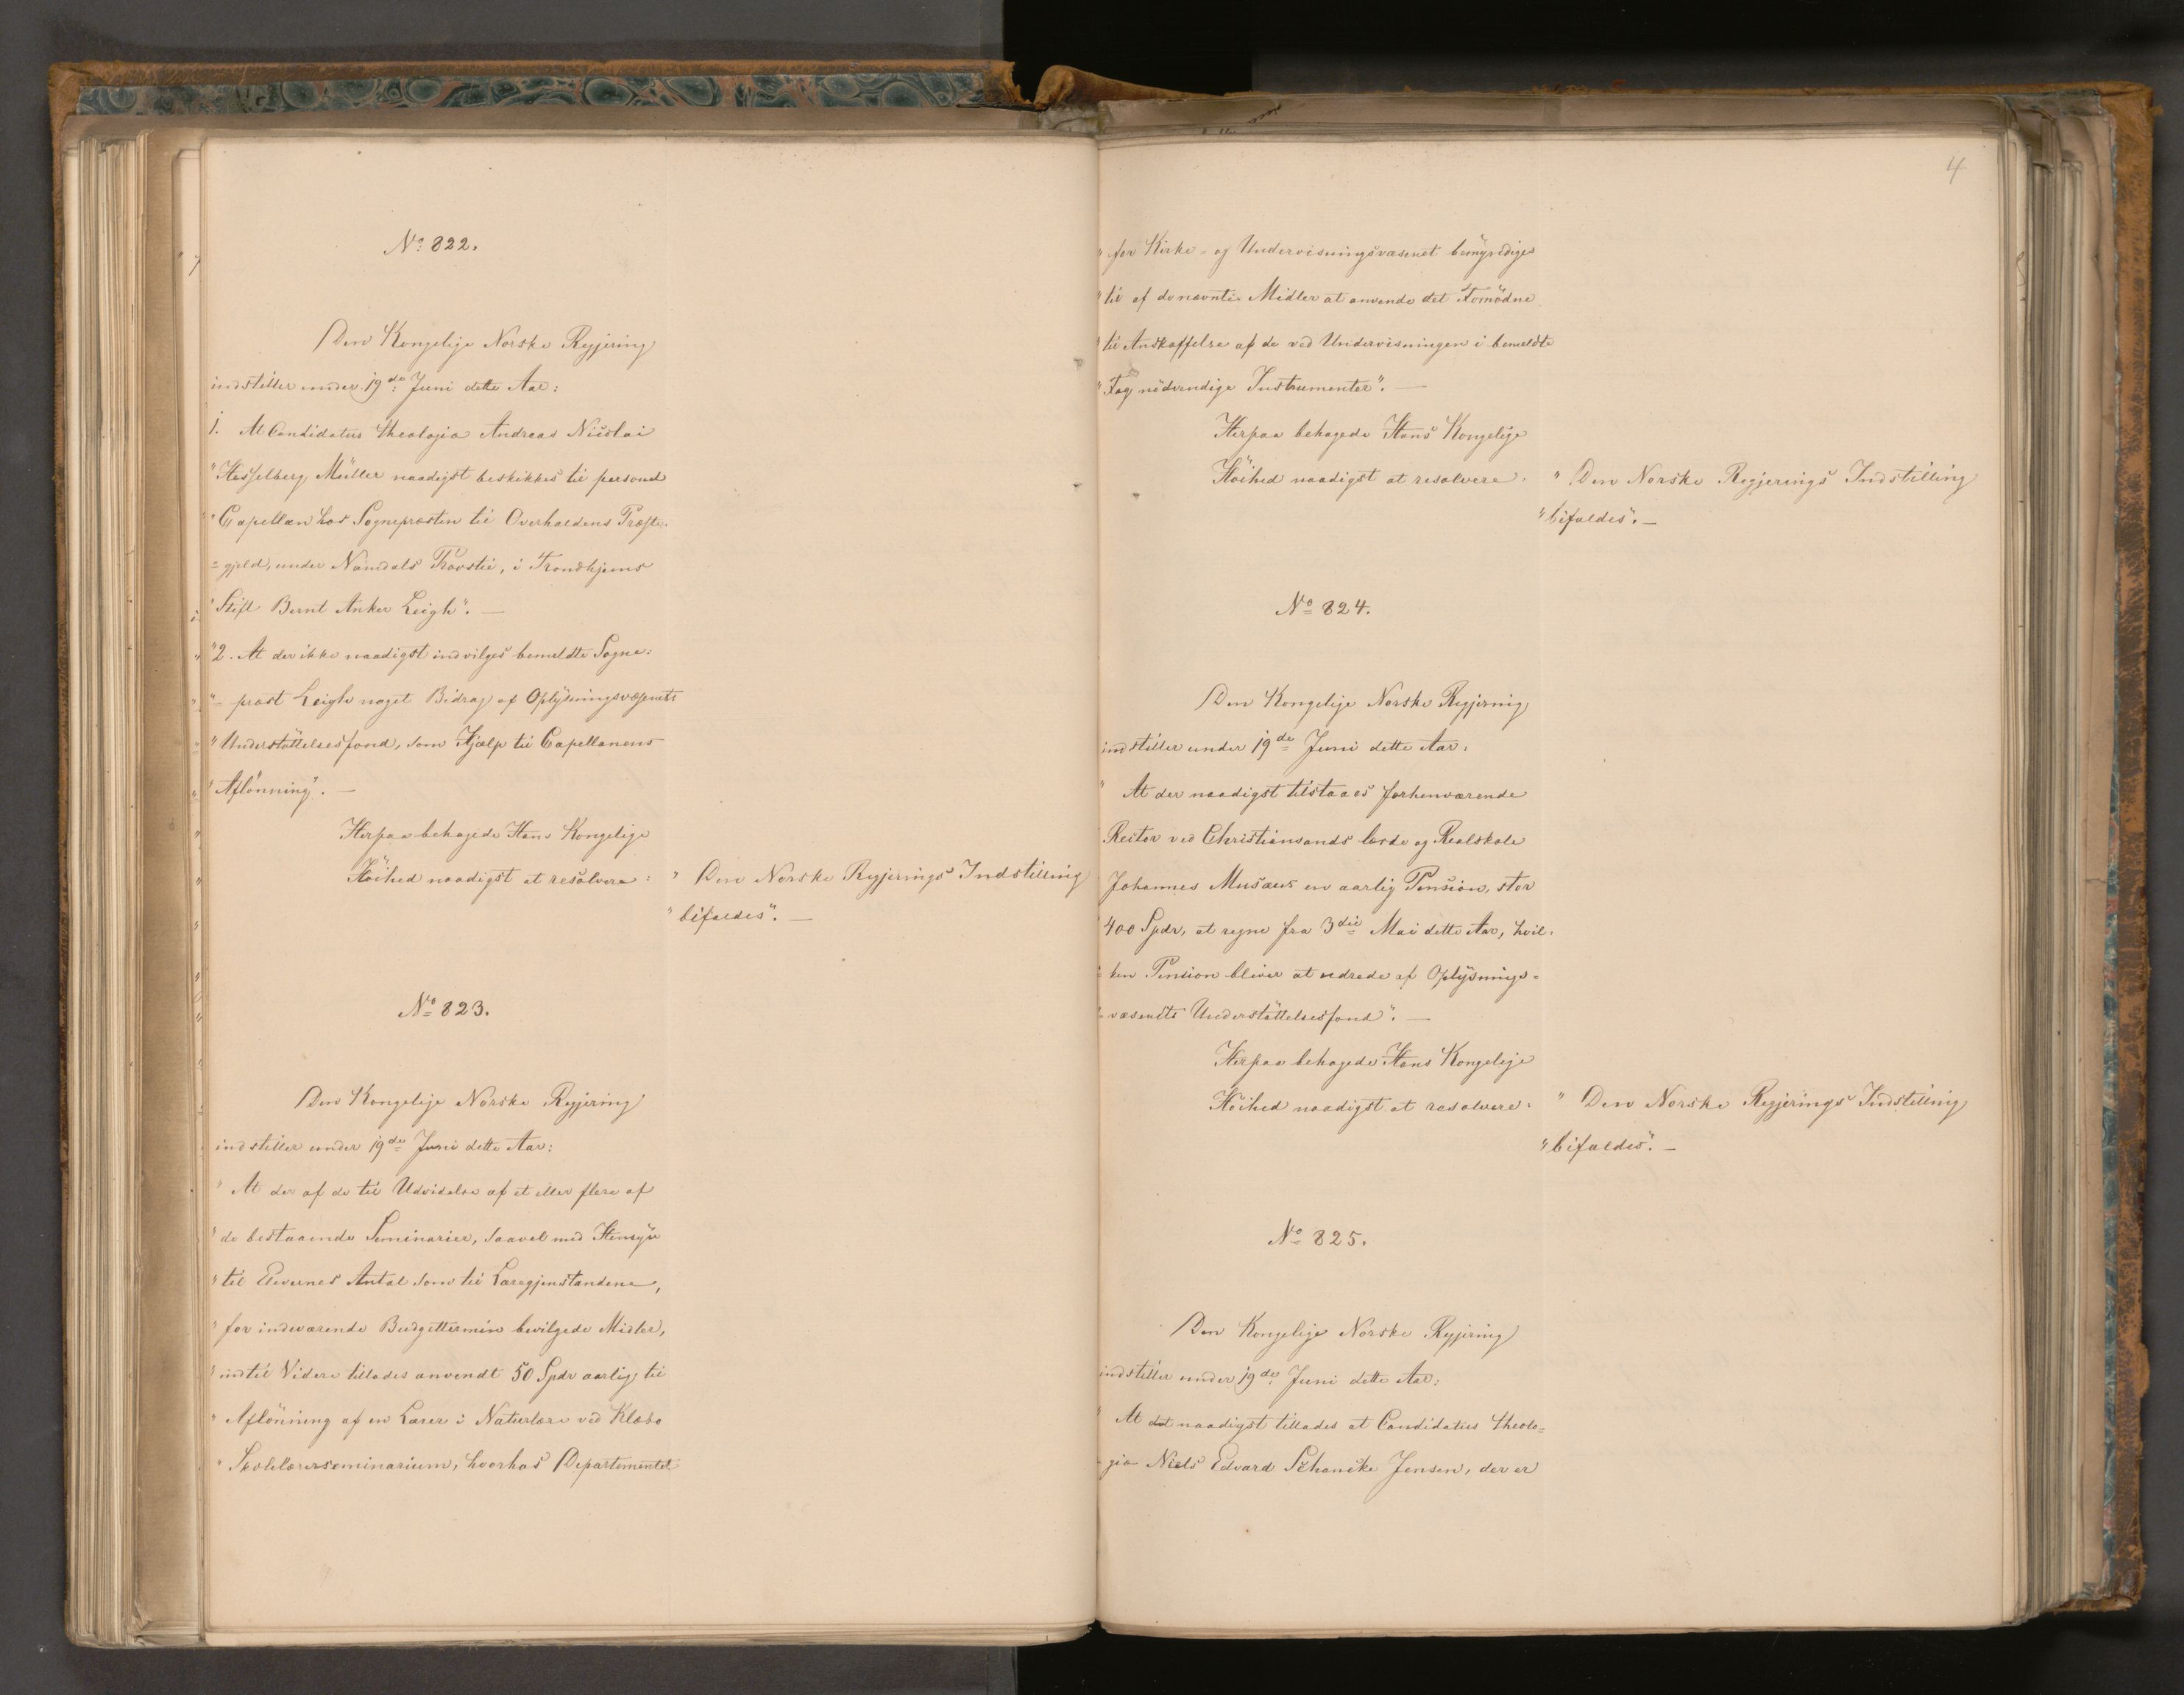 No 822.
Den Kongelige Norske Regjering
indstiller under 19de Juni dette Aar:
1. At Candidatus theologiæ Andreas Nicolai
"Hesselberg Müller naadigst beskikkes til personel
"Capellan hos Sognepræsten til Overhaldens Præste-
=gjeld, under Namdals Provsti, i Trondhjems
"Stift Bernt Anker Leigh". —
"2. At der ikke naadigst indvilges bemeldte Sogne=
"=præst Leigh noget Bidrag af Oplysningsvæsenets
"Understøttelsesfond, som Hjælp til Capellanens
"Aflönning". —
Herpaa behagede Hans Kongelige
Höihed naadigst at resolvere:
" Den Norske Regjerings Indstilling
"bifaldes". —
No 823.
Den Kongelige Norske Regjering
indstiller under 19de Juni dette Aar:
" At der af de til Udvidelse af et eller flere af
"de bestaaende Seminarier, saavel med Hensyn
"til Elevernes Antal som til Læregjenstandene,
"for indeværende Budgettermin bevilgede Midler,
"indtil Videre tillades anvendt 50 Spdr aarlig til
"Aflönning af en Lærer i Naturlære ved Klæbo
"Skolelærerseminarium, hvorhos Departementet
4
"for Kirke- og Undervisningsvæsenet bemyndiges
"til af de nævnte Midler at anvende det Fornödne
"til Anskaffelse af de ved Undervisningen i bemeldte
"Fag nödvendige Instrumenter". —
Herpaa behagede Hans Kongelige
Höihed naadigst at resolvere:
" Den Norske Regjerings Indstilling
"bifaldes". —
No 824.
Den Kongelige Norske Regjering
indstiller under 19de Juni dette Aar:
" At der naadigst tilstaaes forhenværende
Rector ved Christiansands lærde og Realskole
Johannes Musæus en aarlig Pension, stor
400 Spdr, at regne fra 3die Mai dette Aar, hvil=
=ken Pension bliver at udrede af Oplysnings=
=væsenets Understöttelsesfond". —
Herpaa behagede Hans Kongelige
Höihed naadigst at resolvere:
" Den Norske Regjerings Indstilling
"bifaldes". —
No 825.
Den Kongelige Norske Regjering
indstiller under 19de Juni dette Aar:
" At det naadigst tillades at Candidatus theolo=
=giæ Niels Edvard Schancke Jensen, der er